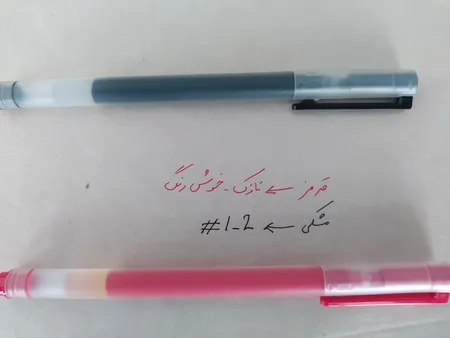 قرمز ← نازک - خوش رنگ
مشکی ← 2-1#